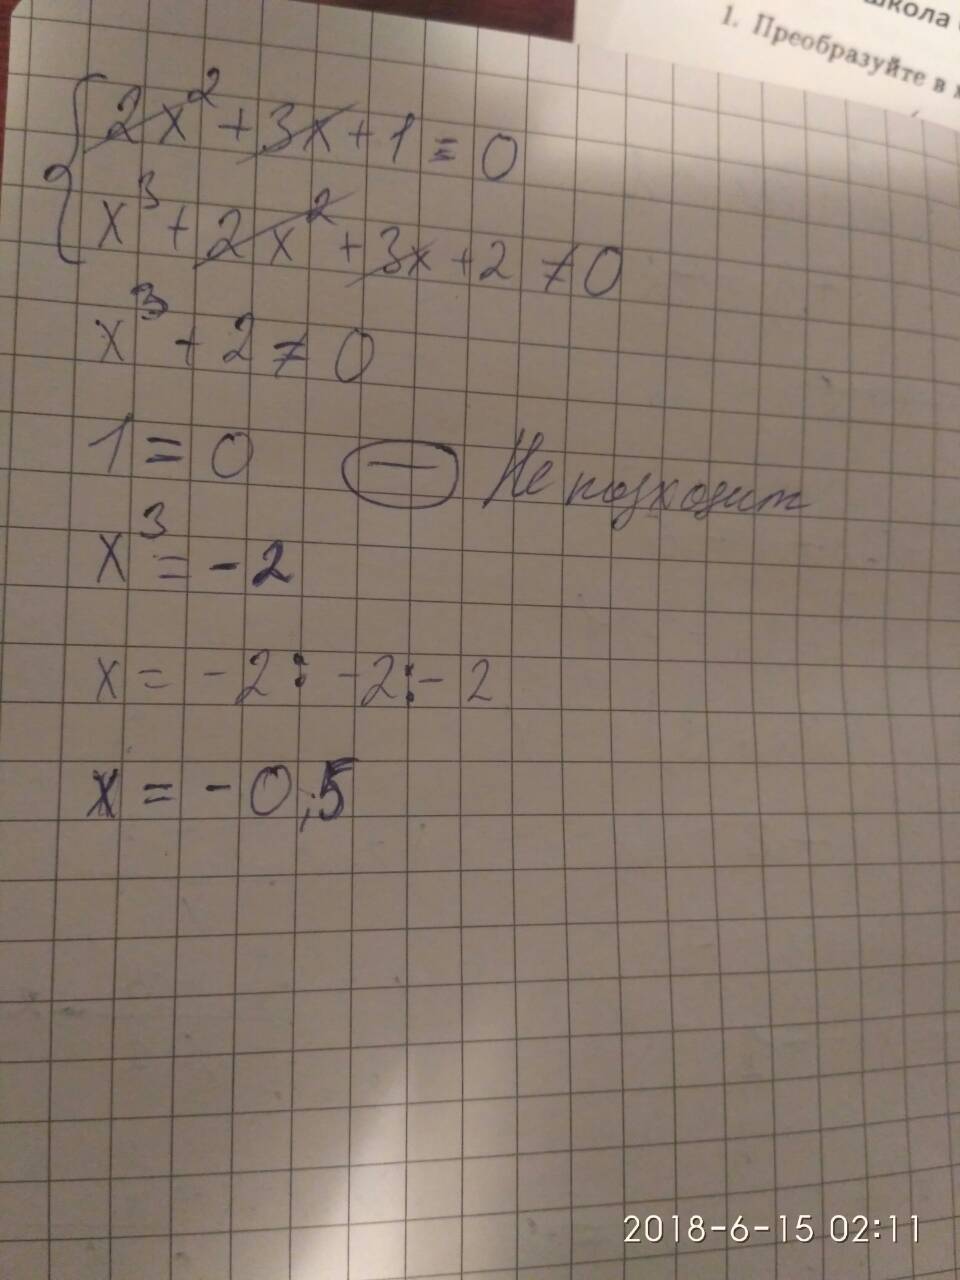 школа
1. Преобразуйте в
2x² + 3x + 1 = 0
x³ + 2x² + 3x + 2 ≠ 0
x³ + 2 ≠ 0
1 = 0 — Не подходит
x³ = -2
x = -2 : -2 : -2
x = -0,5
2018-6-15 02:11